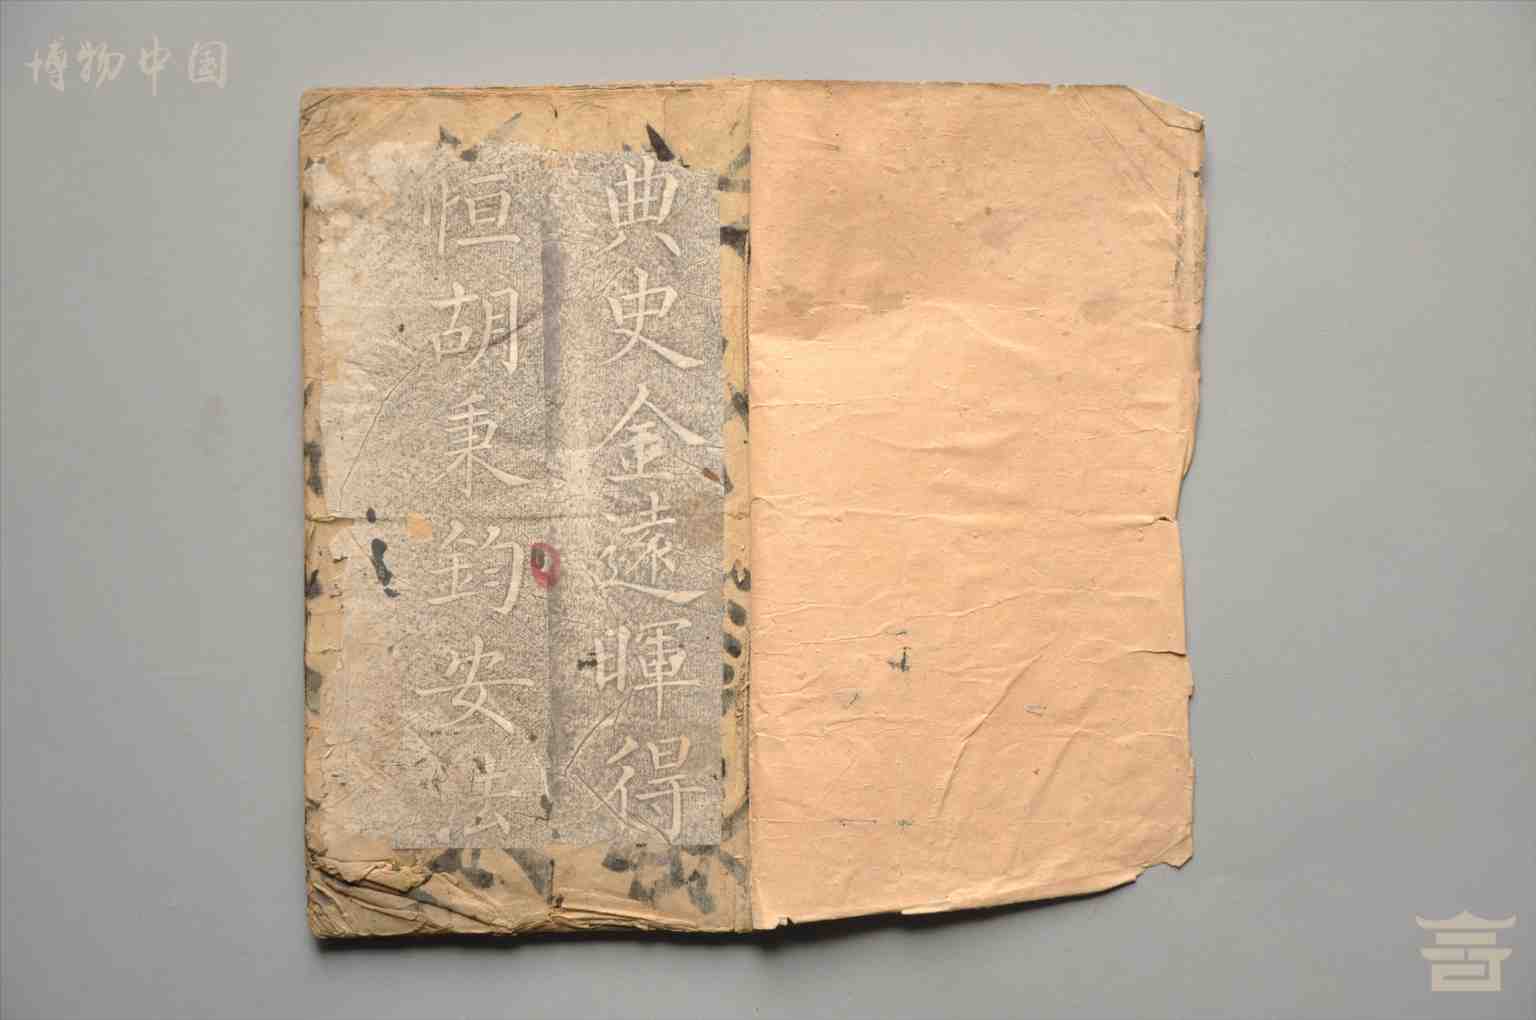 博物中国
典史金遠暉得
恒胡秉鈞安法